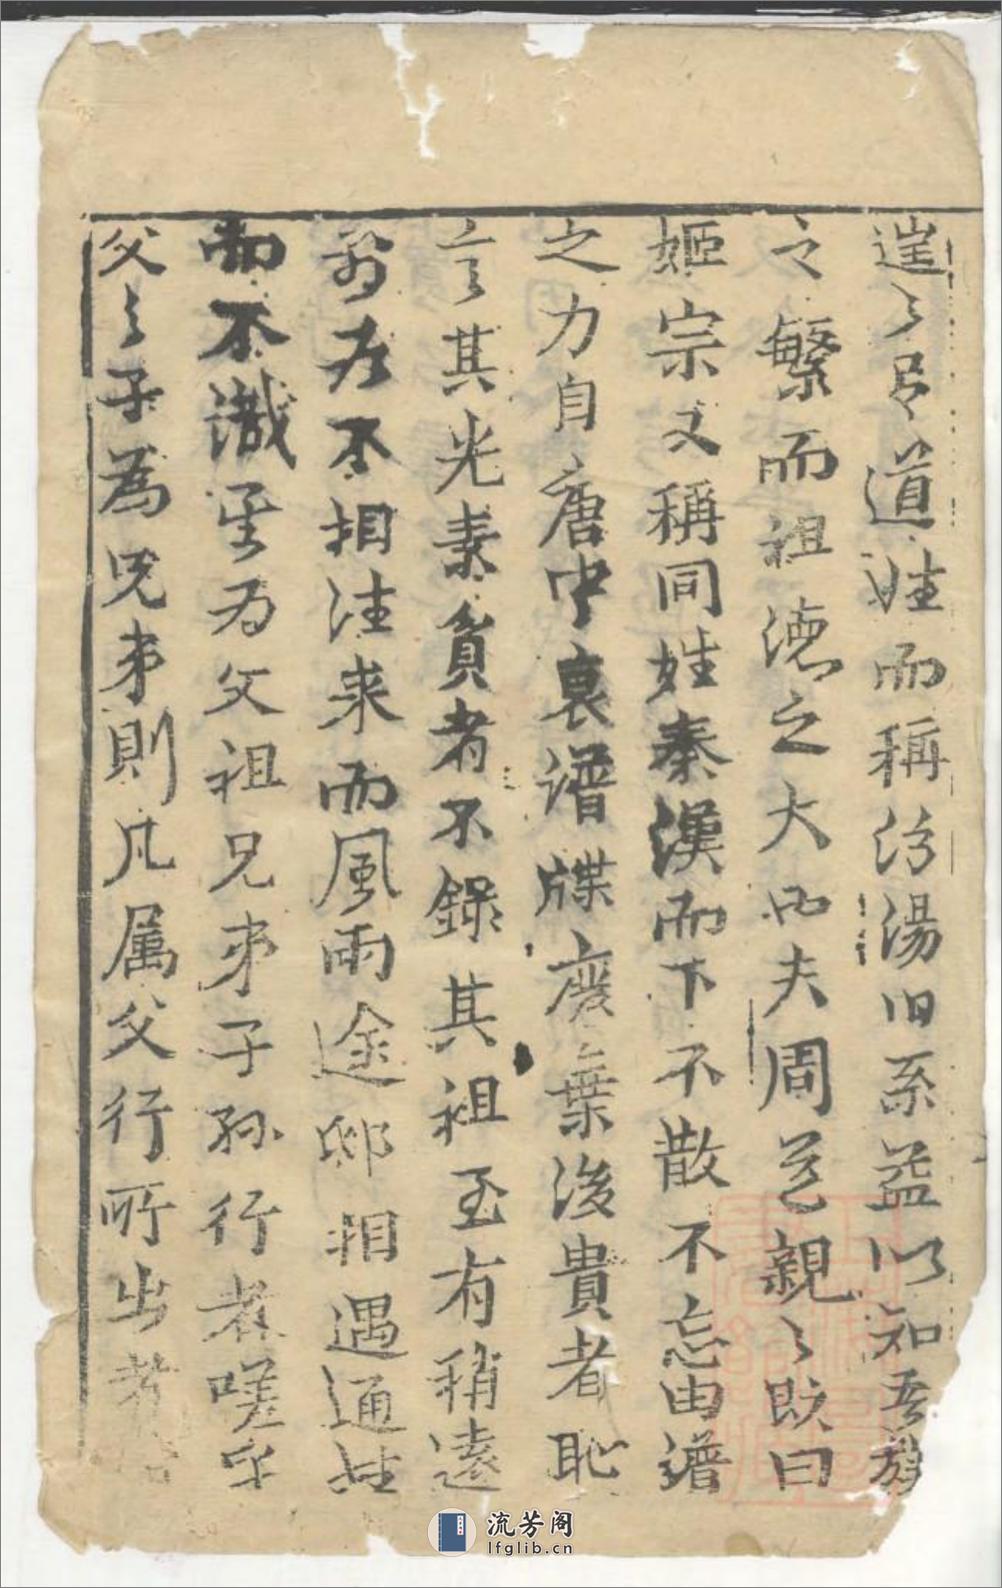 道姓而稱汾湯旧系益以知吾族
之繁而祖德之大也夫周道親々既曰
姬宗又稱同姓秦漢而下不散不忘由譜
之力自唐中衰譜牒废棄後貴者恥
言其先素貧者不錄其祖至有稍遠
为不相往来而風雨途邸相遇通姓
而不識至为父祖兄弟子孙行者嗟乎
父之子為兄弟則凡属父行所出者
流芳阁
lfglib.cn